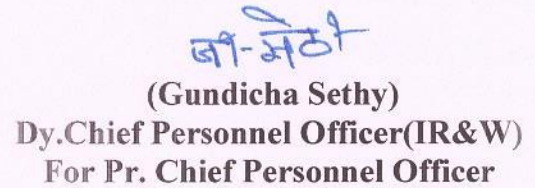 जी-सेठी
(Gundicha Sethy)
Dy.Chief Personnel Officer(IR&W)
For Pr. Chief Personnel Officer